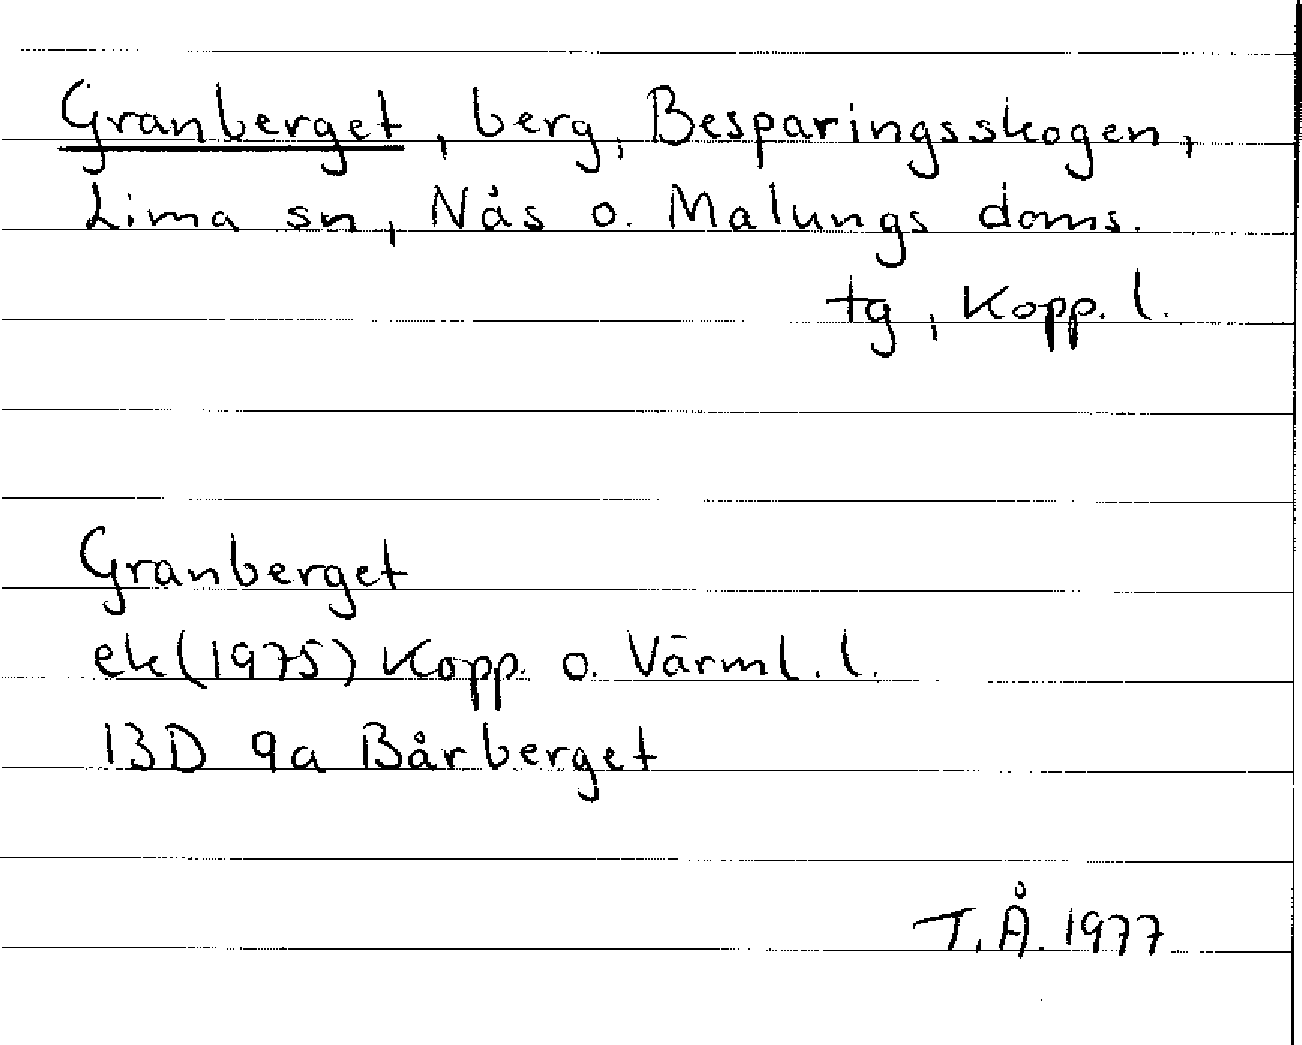 Granberget, berg, Besparingsskogen,
Lima sn, Nås o. Malungs doms.
tg, Kopp. l.
Granberget
ek (1975) Kopp. o. Värml. l.
13D 9a Bårberget
T. Å. 1977